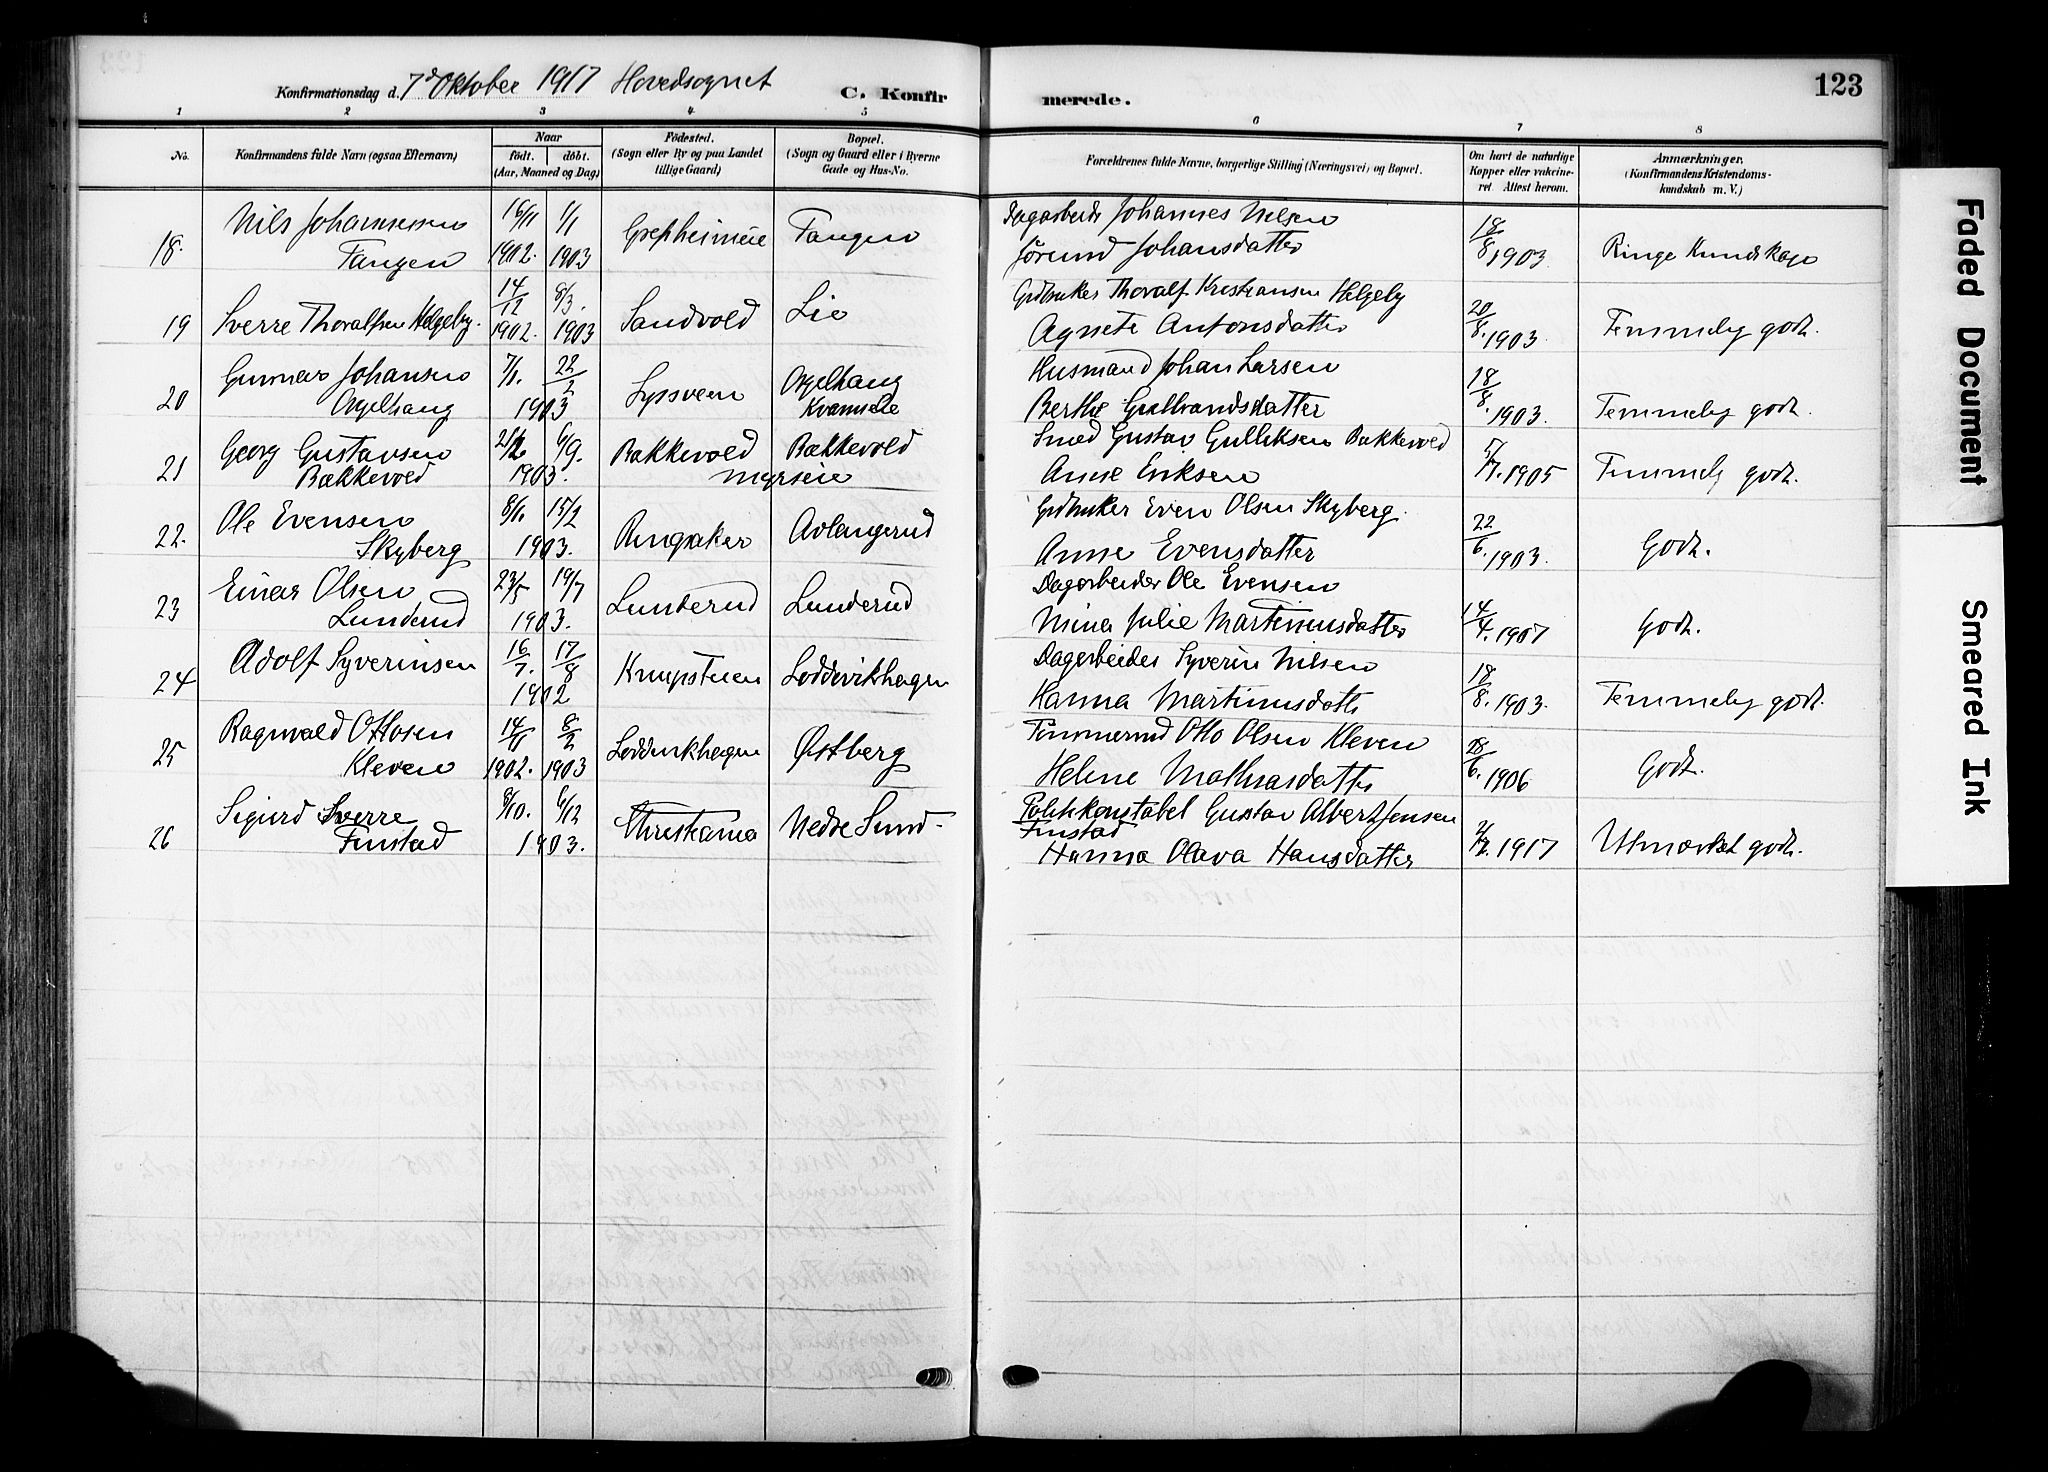 Konfirmationsdag d. 7d Oktober 1917 Hovedsognet C. Konfirmerede. 123
1 2 3 4 5 6 7 8
No. Konfirmandens fulde Navn (ogsaa Efternavn) Naar født. døbt. (Aar, Maaned og Dag) Fødested. (Sogn eller By og paa Landet tillige Gaard) Bopæl. (Sogn og Gaard eller i Byerne Gade og Hus-No. Forældrenes fulde Navne, borgerlige Stilling (Næringsvei) og Bopæl. Om havt de naturlige Kopper eller vakcineret. Attest herom. Anmærkninger. (Konfirmandens Kristendomskundskab m. V.)
Nils Johannessen 16/11 1/1 Dagarbeid Johannes Nilsen 18/8
18. Tangen 1902. 1903 Grefsheimeie Tangen Jørund Johansdatter 1903 Ringe Kundskap
14/12 8/3. Grdbruker Thoralf Kristiansen Helgeby 20/8.
19 Sverre Thoralfsen Helgeby. 1902. 1903 Sandvold Lie Agnete Antonsdatter 1903 Temmelig godt.
Gunnar Johansen 7/1. 22/2 Husmand Johan Larsen 18/8
20 Ogelhaug 1903 Lyssveen Ogelhaug Kvarnseie Berthe Gulbrandsdatter 1903. Temmelig godt.
Georg Gustavsen 6/9. Bakkevold Bækkevold Smed Gustav Gulliksen Bakkevold
21 Bækkevold 1903. Myrseie Anne Eriksen 1905 Temmelig godt.
Ole Evensen 8/1. 15/2 Grdbruker Even Olsen Skyberg 22/6
22. Skyberg 1903. Ringsaker Avlangerud Anne Evensdatter 1903. Godt.
Einar Olsen 23/5 19/7 Dagarbeider Ole Evensen
23 Lunderud 1903. Lunderud Lunderud Mina Julie Martinusdatter 14/4. 1907 Godt.
Adolf Syverinsen 16/7. 17/8 Dagarbeider Syverin Nilsen
24 1902 Knupstuen Loddvikhagen Hanna Martinusdatter 18/8. 1903. Temmelig godt.
Ragnvald Ottosen 14/11 8/2 Tømmermd Otto Olsen Kleven
25 Kleven 1902. 1903 Loddvikhagen Østberg Helene Mathiasdatter 28/6. 1906 Godt.
Sigurd Sverre 8/10. 6/12 Politikonstabel Gustav Albert Jensen Finstad
26 Finstad 1903. Christiania Nedre Sund Hanna Olava Hansdatter 1917 Utmærket godt.
Faded Document
Smeared Ink